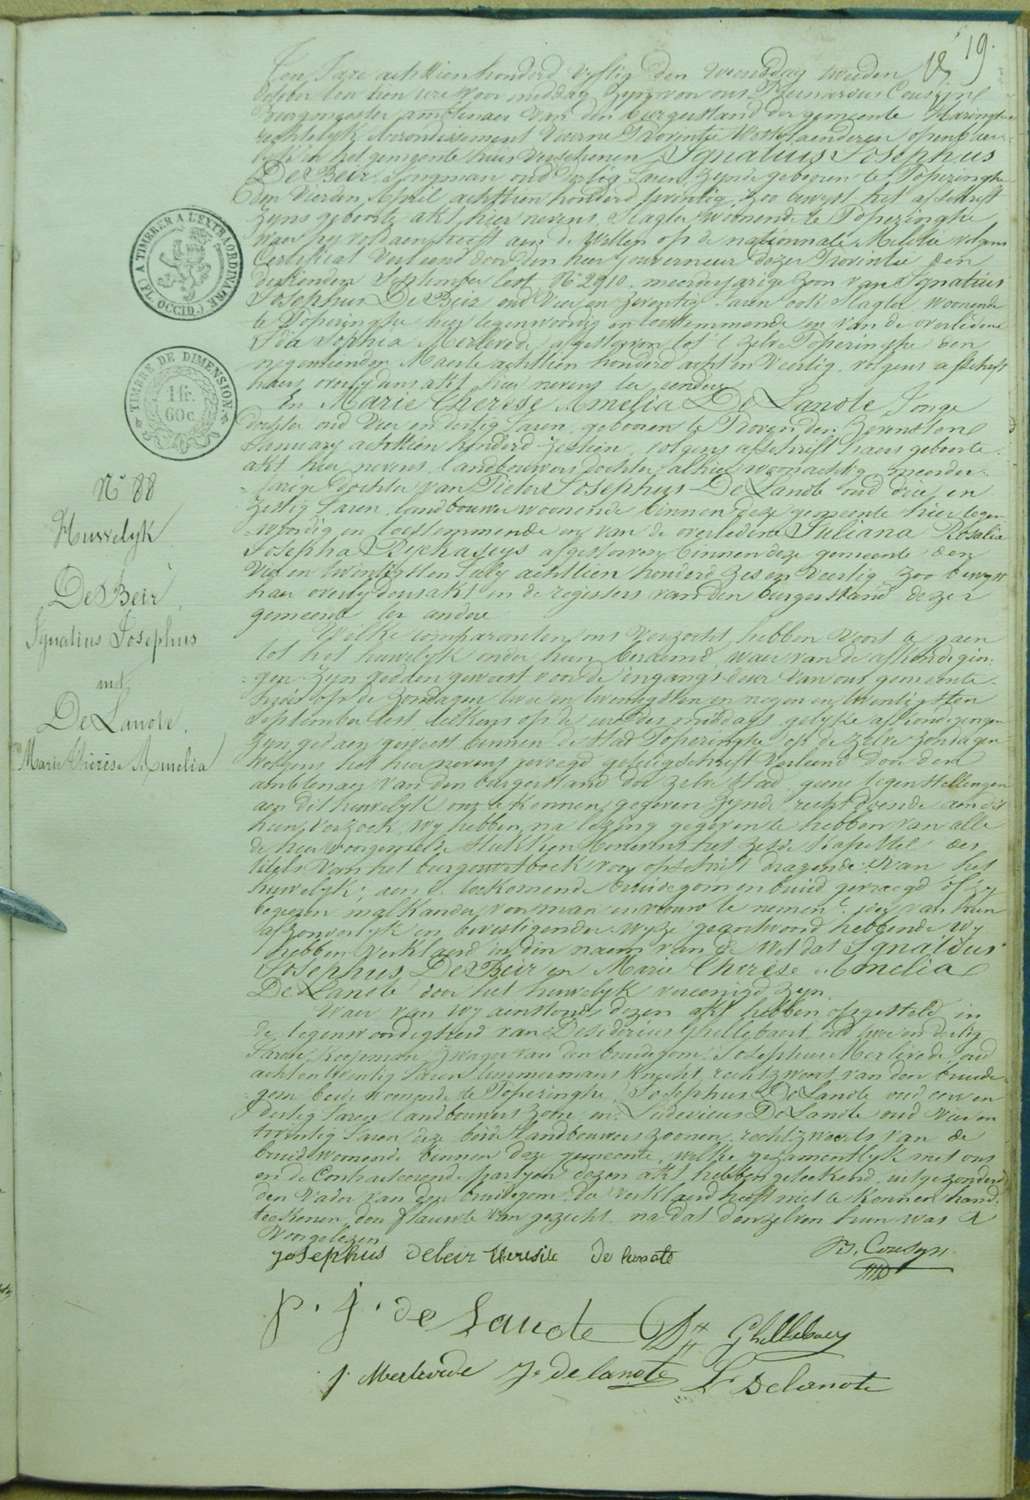 19.
Ten Jare achttien honderd vyftig den woensdag tweeden
October ten tien ure voor middag zyn voor ons Bernardus Cousyn
Burgemeester ambtenaer van den burgerstand der gemeente Haringhe
rechterlyk Arrondissement Veurne Provintie Westvlaenderen openbaer-
lyk in het gemeente huis verschenen Ignatius Josephus
De Beir Jongman oud dertig Jaren zynde geboren te Poperinghe
den vierden April achttien honderd twintig, zoo bewyst het afschrift
zyns geboorte akt hier nevens, Slagter woonende te Poperinghe
waer hy voldaen heeft aen de wetten op de nationnale Militie volgens
Certificat verleend door den heer gouverneur dezer Provintie den
September lest N° 2910. meerderjarige zoon van Ignatius
Josephus De Beir oud vier en zeventig Jaren ook Slagter woonende
te Poperinghe hier tegenwoordig en toestemmende en van de overledene
Sophia Merlevede afgestorven tot t' zelve Poperinghe den
negentienden Maerte achttien honderd acht en veertig, volgens afschrift
haers overlydens akt hier nevens ter eendere
En Marie Therese Amelia De Lanote Jonge
dochter oud vier en dertig Jaren, geboren te Proven den
January achttien honderd zestien, volgens afschrift haers geboorte
akt hier nevens, landbouwers dochter alhier woonachtig meerder-
jarige dochter van Pieter Josephus De Lanote oud drie en
zestig Jaren landbouwer woonende binnen deze gemeente hier tegen-
woordig en toestemmende en van de overledene Juliana Rosalia
Josepha afgestorven binnen deze gemeente den
vier en twintigsten July achttien honderd zes en veertig, zoo bewyst
haer overlydens akt in de registers van den burgerstand dezer
gemeente ter andere
Welke comparanten ons verzocht hebben voort te gaen
tot het huwelyk onder hun beraemd, waer van de afkondigin-
gen zyn gedaen geweest voor de ingangs deur van ons gemeente-
huis op de zondagen twee en twintigsten en negen en twintigsten
September lest telkens op de ure des middags gelyke afkondigingen
zyn gedaen geweest binnen de stad Poperinghe op de zelve zondagen
volgens het hier nevens gevoegd getuigschrift verleend door den
ambtenaer van den burgerstand der zelve stad, geene tegenstellingen
aen dit huwelyk ons te kennen gegeven zynde, recht doende aen
hun verzoek, wy hebben na lezing gegeven te hebben van alle
de hier voorgemelde stukken benevens het zesde kapittel des
titels van het burgerwetboek voor opschrift dragende "Van het
huwelyk", aen d' toekomende bruidegom en bruid gevraegd of zy
begeeren malkander voor man en vrouw te nemen; ider van hun
afzonderlyk en bevestigender wyze geantwoord hebbende wy
hebben verklaerd in den naem van de Wet dat Ignatius
Josephus De Beir en Marie Therese Amelia
De Lanote door het huwelyk vereenigd zyn
Waer van wy aenstonds dezen akt hebben opgesteld in
de tegenwoordigheid van Desiderius Ghellebaert oud en dertig
Jaren, zwager van den bruidegom, Josephus Merlevede oud
acht en twintig Jaren timmermans knecht, rechtzweer van den bruide-
gom beide woonende te Poperinghe, Josephus De Lanote oud een en
dertig Jaren landbouwers zoon, en Ludovicus De Lanote oud vier en
twintig Jaren deze beide landbouwers zoonen rechtzweers van de
bruid woonende binnen deze gemeente, welke gezamentlyk met ons
en de Contracterende partyen dezen akt hebben geteekend, uitgezonderd
den vader van den bruidegom die verklaerd heeft niet te konnen hand-
teekenen, door flauwte van gezicht, na dat den zelven hun was
voorgelezen
Josephus debeir theresie de lanote B. Cousyn
p. j. de Lanote D. Ghellebaert
j. Merlevede J. delanote L. Delanote
A TIMBRER A L'EXTRAORDINAIRE (FL. OCCID.)
TIMBRE DE DIMENSION
1 fr.
60 c.
N° 88
Huwelyk
De Beir,
Ignatius Josephus
met
De Lanote,
Marie Therese Amelia